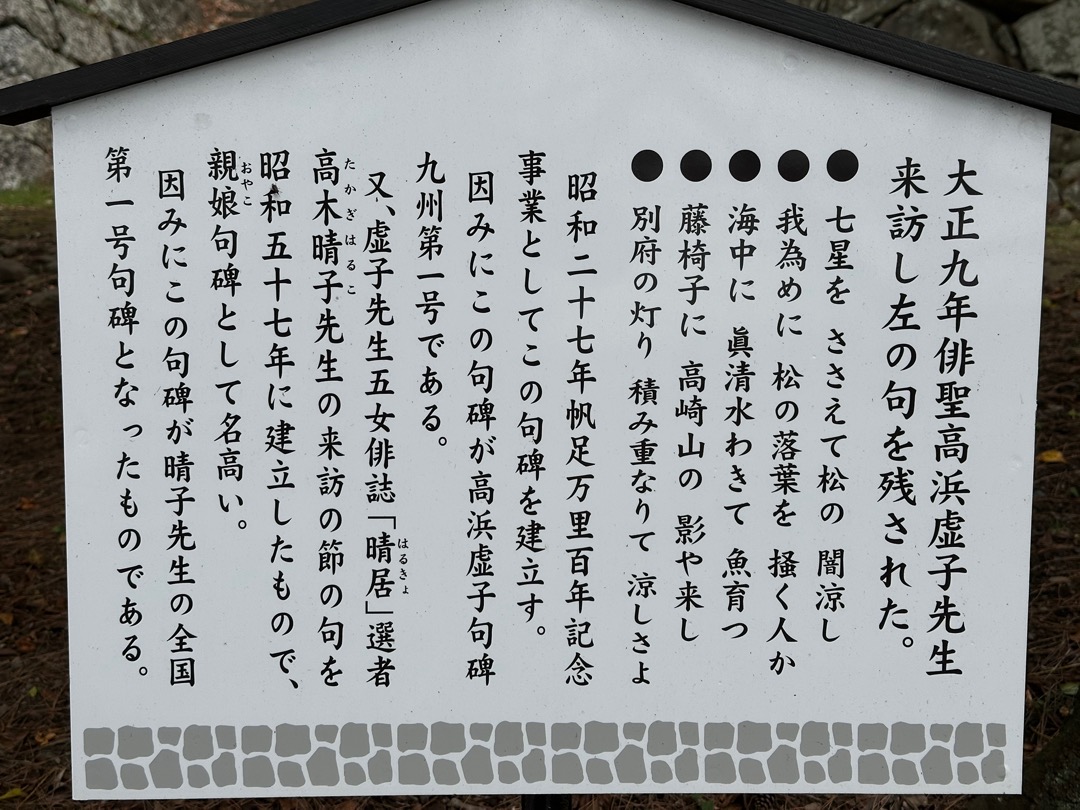 大正九年俳聖高浜虚子先生
来訪し左の句を残された。
●七星を ささえて松の 闇涼し
●我為めに 松の落葉を 掻く人か
●海中に 眞清水わきて 魚育つ
●藤椅子に 高崎山の 影や来し
●別府の灯り 積み重なりて 涼しさよ
昭和二十七年帆足万里百年記念
事業としてこの句碑を建立す。
因みにこの句碑が高浜虚子句碑
九州第一号である。
又、虚子先生五女俳誌「晴居」選者
はるきょ
高木晴子先生の来訪の節の句を
たかぎはるこ
昭和五十七年に建立したもので、
親娘句碑として名高い。
おやこ
因みにこの句碑が晴子先生の全国
第一号句碑となったものである。